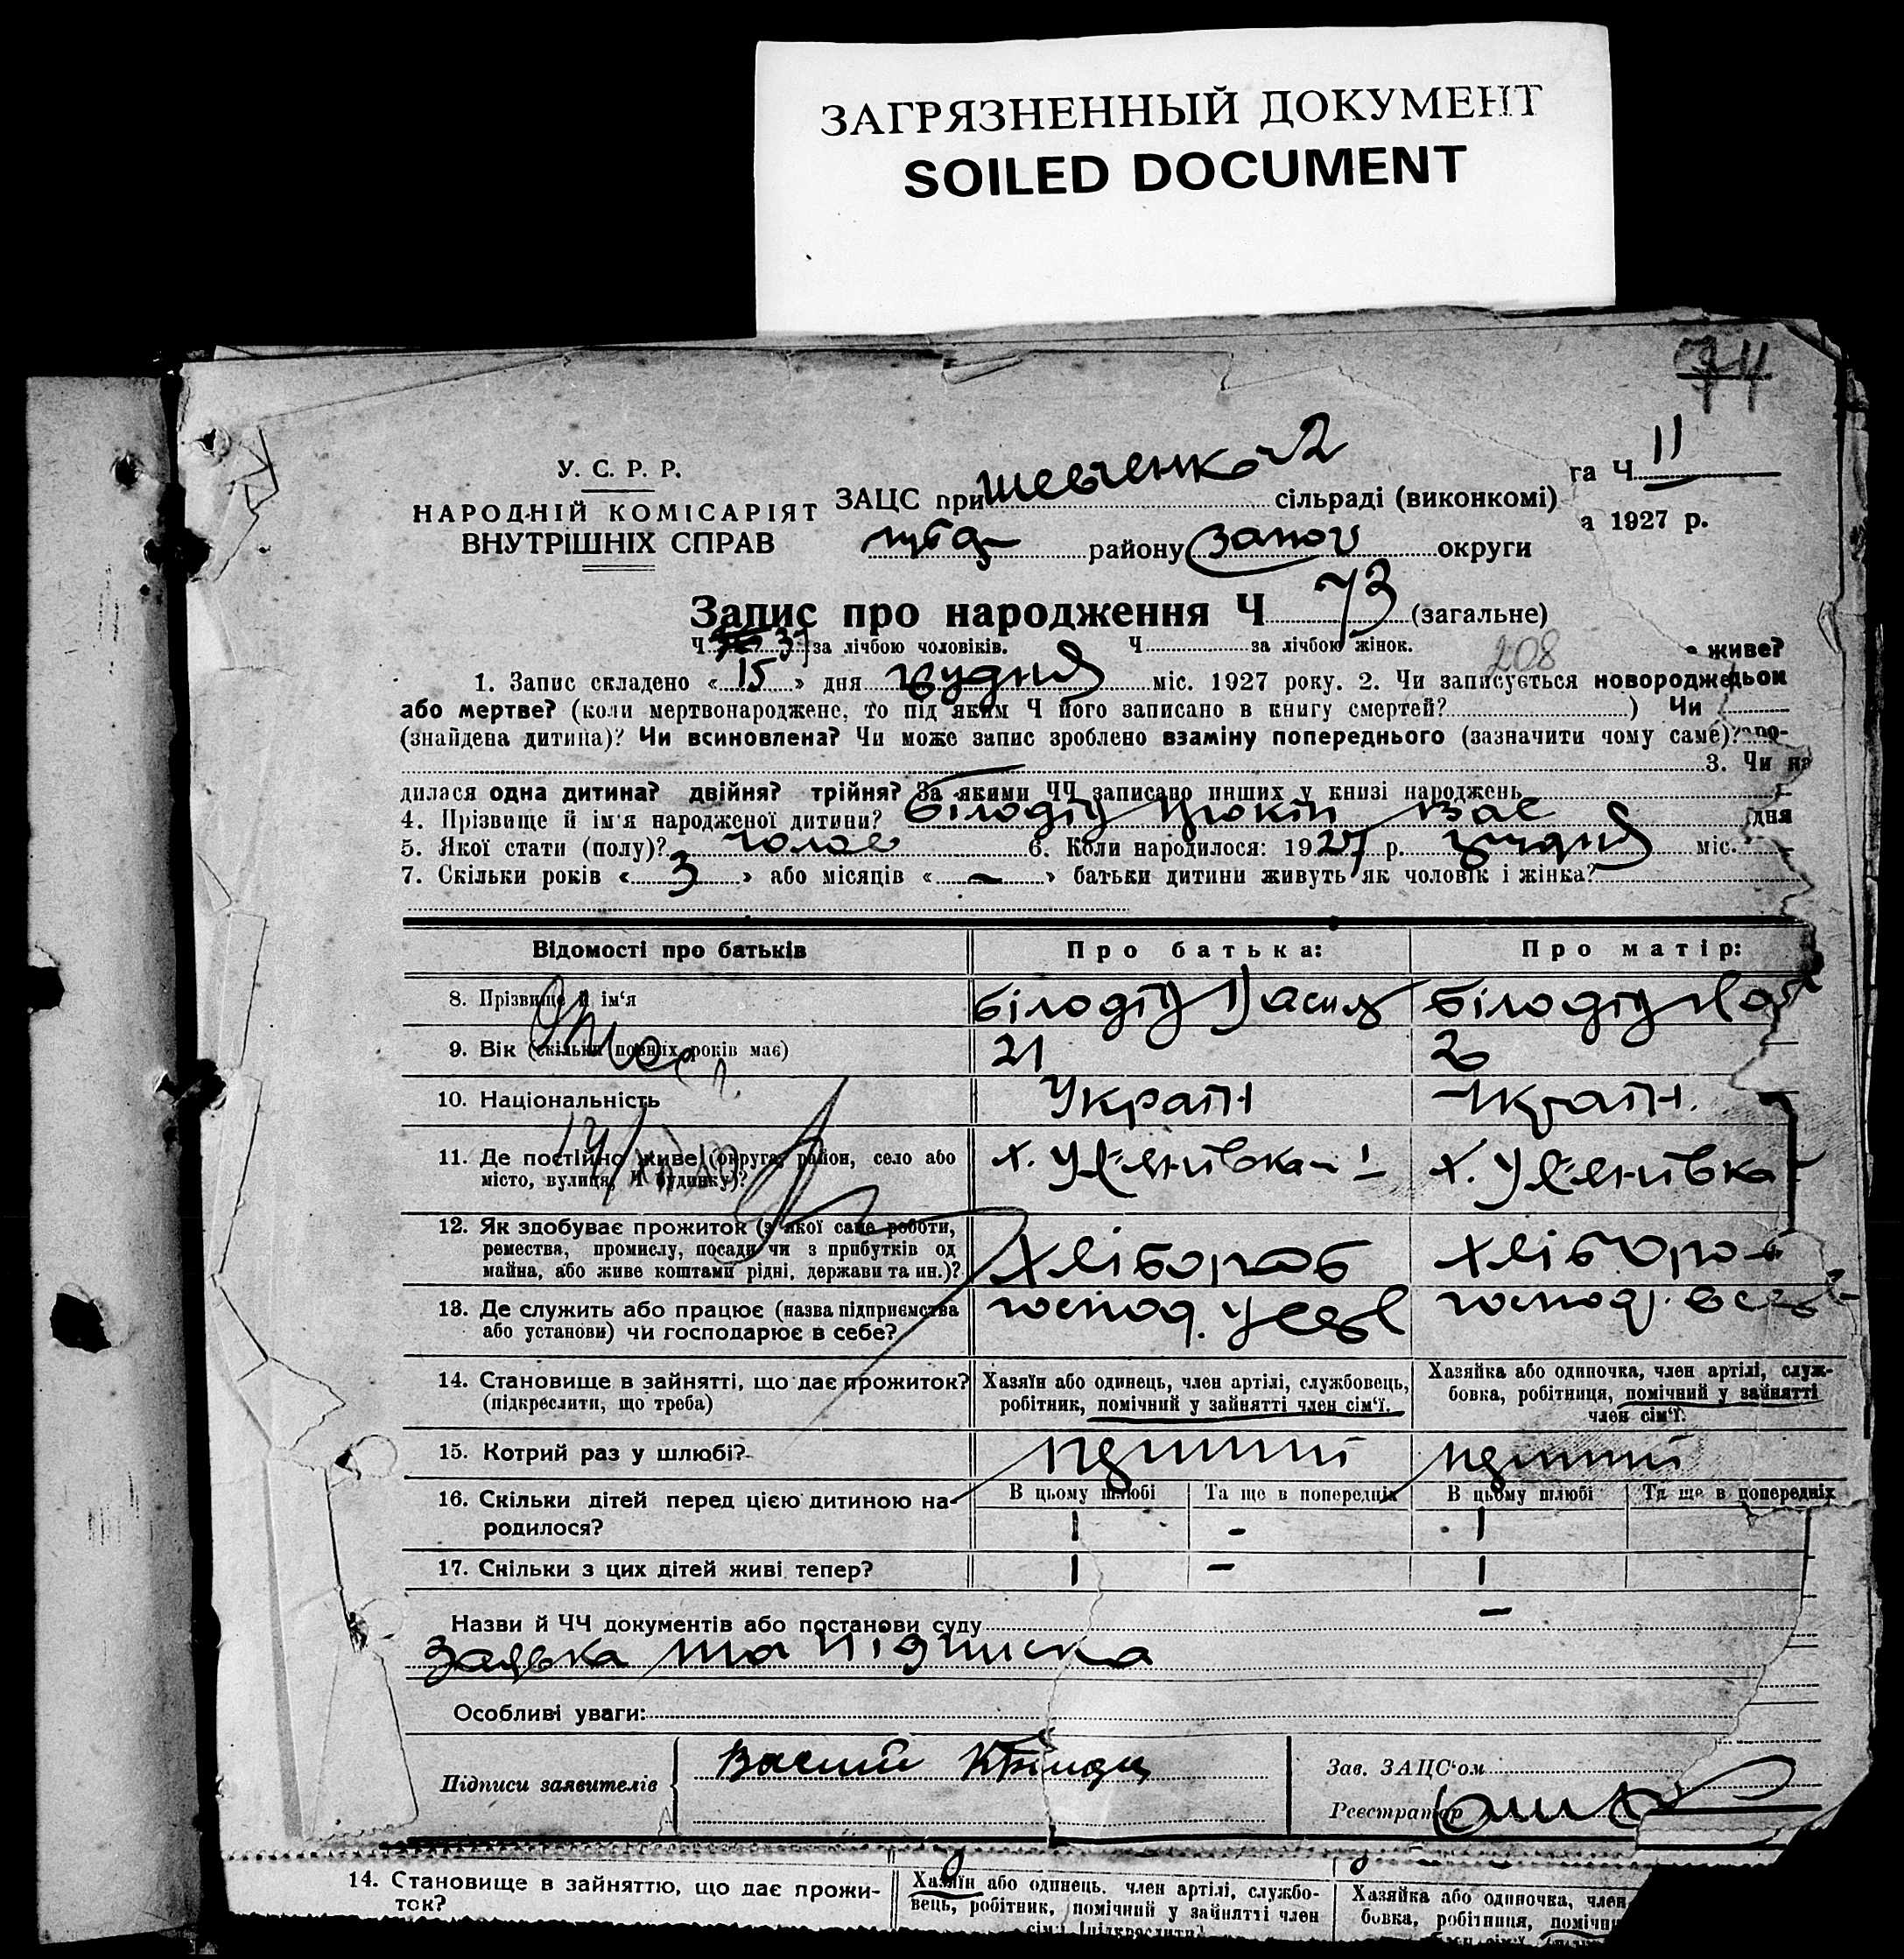 ЗАГРЯЗНЕННЫЙ ДОКУМЕНТ
SOILED DOCUMENT
74
У. С. Р. Р.
НАРОДНІЙ КОМІСАРІЯТ
ВНУТРІШНІХ СПРАВ
ЗАЦС при Шевченко 2 сільраді (виконкомі)
району Запор округи
та Ч 11
а 1927 р.
Запис про народження Ч 73 (загальне)
Ч за лічбою чоловіків. Ч за лічбою жінок.
208
живе?
1. Запис складено « 15 » дня грудня міс. 1927 року. 2. Чи записується новородже
або мертве? (коли мертвонароджене, то під яким Ч його записано в книгу смертей? ) Чи
(знайдена дитина)? Чи всиновлена? Чи може запис зроблено взаміну попереднього (зазначити чому саме)?
3. Чи на
дилася одна дитина? двійня? трійня? За якими ЧЧ записано инших у книзі народжень
4. Прізвище й ім'я народженої дитини? Білодід Вас
дня
5. Якої стати (полу)? чолов 6. Коли народилося: 1927 р. грудня міс.
7. Скільки років « 3 » або місяців « — » батьки дитини живуть як чоловік і жінка?
Відомості про батьків Про батька: Про матір:
8. Прізвище й ім'я Білодід Василь Білодід
9. Вік (скільки повних років має) 21
10. Національність Україн Україн.
11. Де постійно живе (округа, район, село або
місто, вулиця, Ч будинку)?
х. Ул'янівка х. Ул'янівка
12. Як здобуває прожиток (з якої саме роботи,
ремества, промислу, посади чи з прибутків од
майна, або живе коштами рідні, держави та ин.)?
Хлібороб Хлібороб
13. Де служить або працює (назва підприємства
або установи) чи господарює в себе?
господ. у себе господ. в себе
14. Становище в зайнятті, що дає прожиток?
(підкреслити, що треба)
Хазяїн або одинець, член артілі, службовець,
робітник, помічний у зайнятті член сім'ї.
Хазяйка або одиночка, член артілі, служ-
бовка, робітниця, помічний у зайнятті
член сім'ї.
15. Котрий раз у шлюбі? перший перший
16. Скільки дітей перед цією дитиною на-
родилося?
В цьому шлюбі Та ще в попередніх В цьому шлюбі Та ще в попередніх
1 - 1
17. Скільки з цих дітей живі тепер? 1 - 1
Назви й ЧЧ документів або постанови суду —
Заявка та підписка
Особливі уваги:
Підписи заявителів
Зав. ЗАЦС'ом
Реєстратор
14. Становище в зайняттю, що дає прожи-
ток?
Хазяїн або одинець, член артілі, службо-
вець, робітник, помічний у зайнятті член
Хазяйка або одиночка, член
бовка, робітниця,